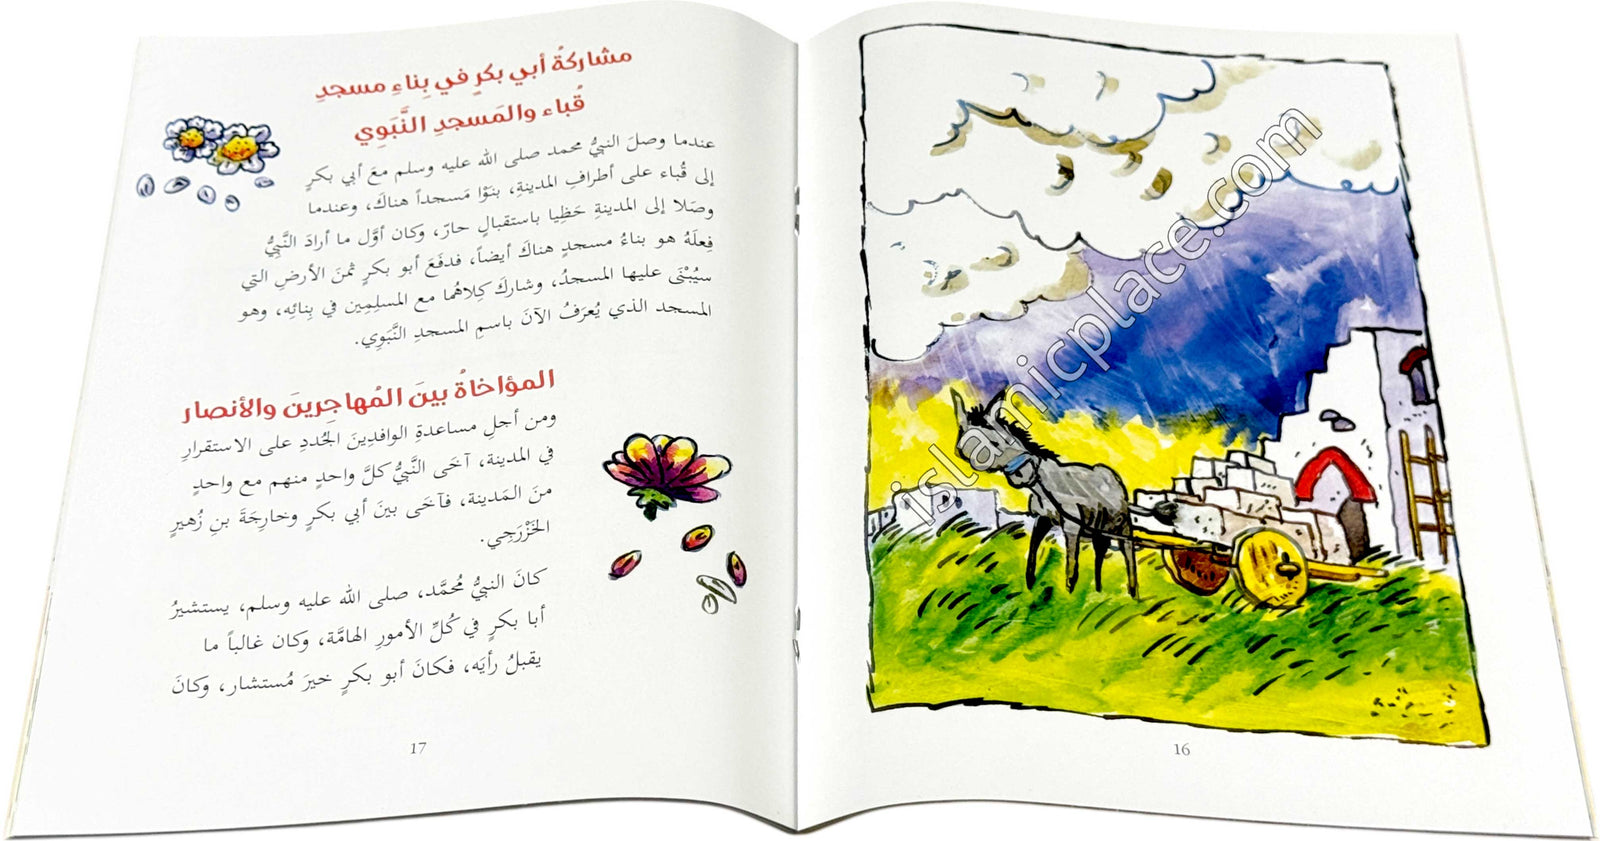 16
islamicplace.com
مشاركةُ أبي بكرٍ في بِناءِ مسجدِ
قُباء والمَسجدِ النَّبَوِي
عندما وصلَ النبيُّ محمد صلى الله عليه وسلم معَ أبي بكرٍ
إلى قُباء على أطرافِ المدينةِ، بنَوْا مَسجداً هناكَ، وعندما
وصَلا إلى المدينةِ حَظِيا باستقبالٍ حارّ، وكان أوَّل ما أرادَ النَّبِيُّ
فِعلَهُ هو بناءُ مسجدٍ هناكَ أيضاً، فدفَعَ أبو بكرٍ ثمنَ الأرضِ التي
سيُبْنَى عليها المسجدُ، وشاركَ كِلاهُما مع المسلِمِين في بِنائِه، وهو
المسجد الذي يُعرَفُ الآنَ باسمِ المسجدِ النَّبَوِي.
المؤاخاةُ بينَ المُهاجِرينَ والأنصار
ومن أجلِ مساعدةِ الوافدِينَ الجُددِ على الاستقرارِ
في المدينة، آخَى النَّبيُّ كلَّ واحدٍ منهم مع واحدٍ
منَ المَدينة، فآخَى بينَ أبي بكرٍ وخارِجَةَ بنِ زُهيرٍ
الخَزْرَجِي.
كانَ النبيُّ مُحمَّد، صلى الله عليه وسلم، يستشيرُ
أبا بكرٍ في كُلِّ الأمورِ الهامَّة، وكان غالباً ما
يقبلُ رأيَه، فكانَ أبو بكرٍ خيرَ مُستشار، وكانَ
17